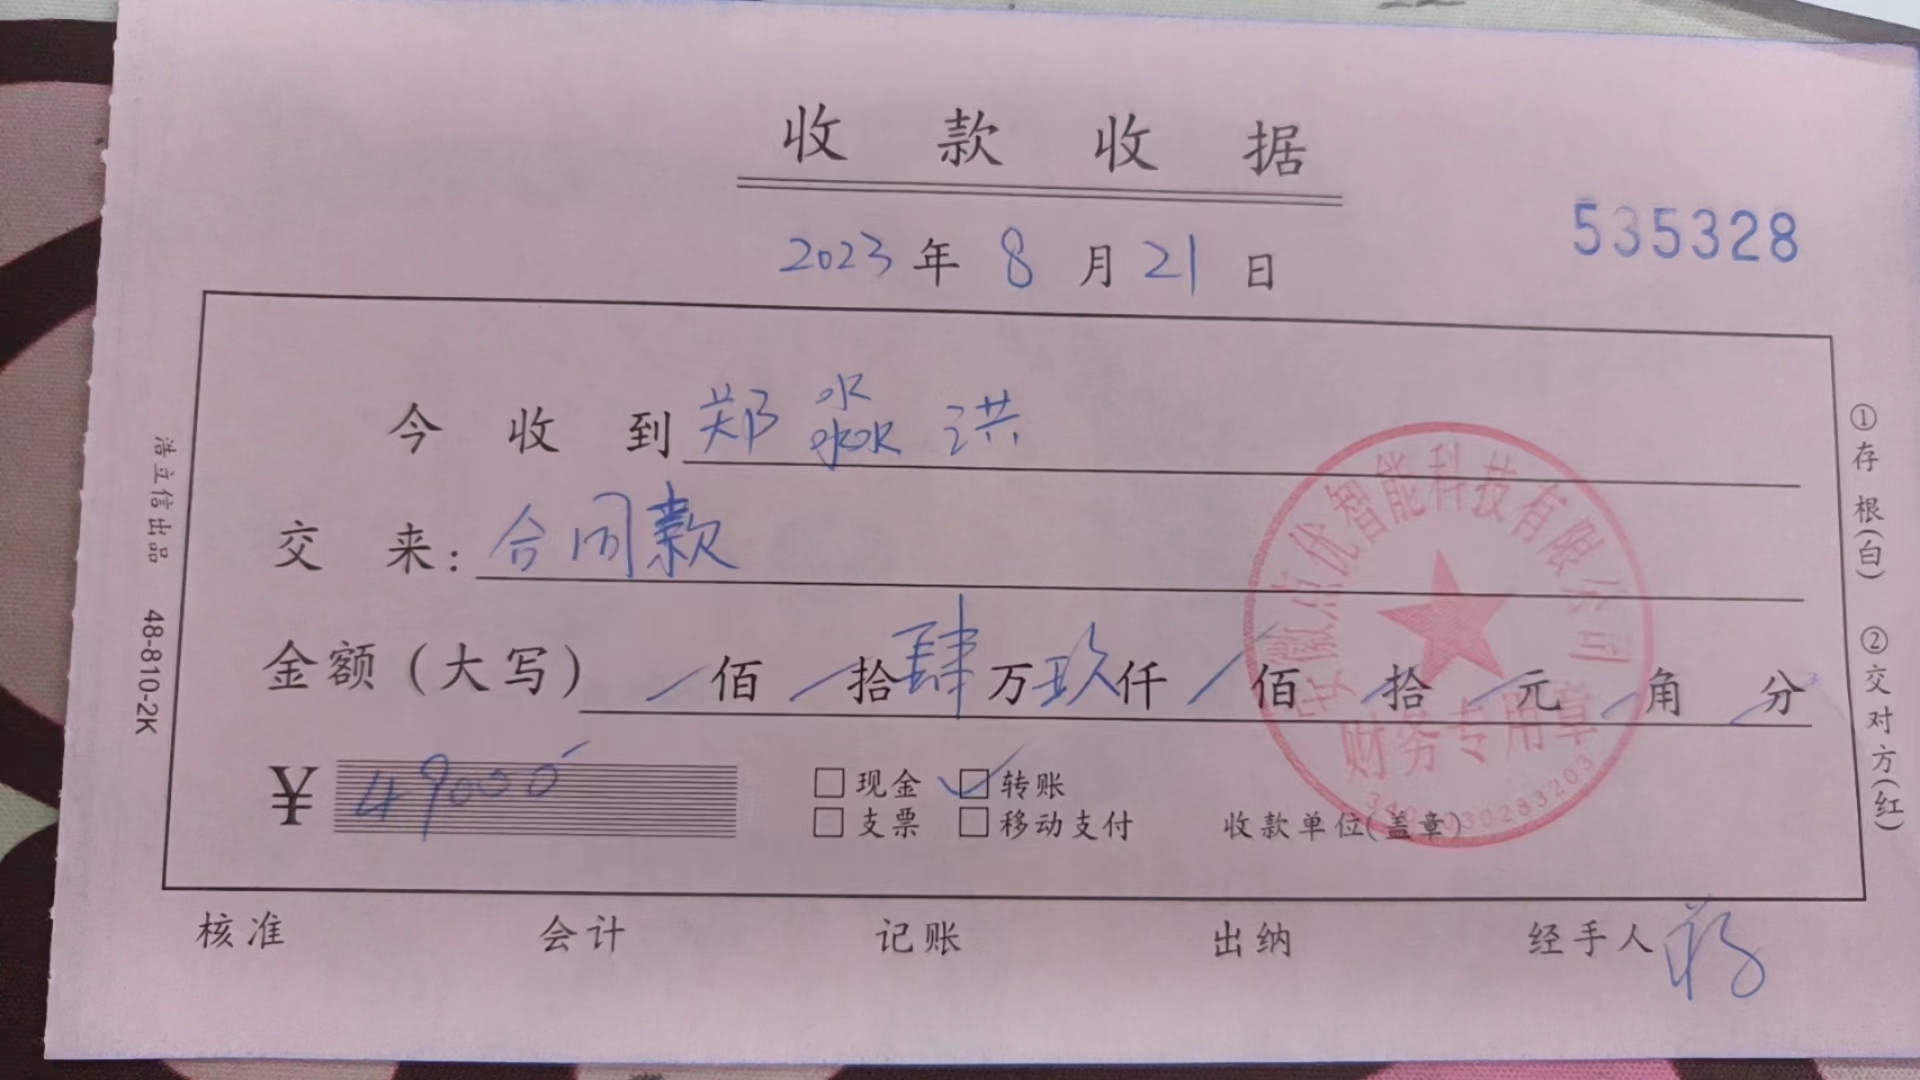 收款收据
535328
2023年8月21日
今收到郑淼洪
交来:合同款
金额(大写) / 佰 / 拾肆万玖仟 / 佰 / 拾 / 元 / 角 / 分
¥ 49000
□现金 ☑转账
□支票 □移动支付
收款单位(盖章)
智能科技有限公司
财务专用章
核准 会计 记账 出纳 经手人
浩立信出品 48-810-2K
①存根(白) ②交对方(红)